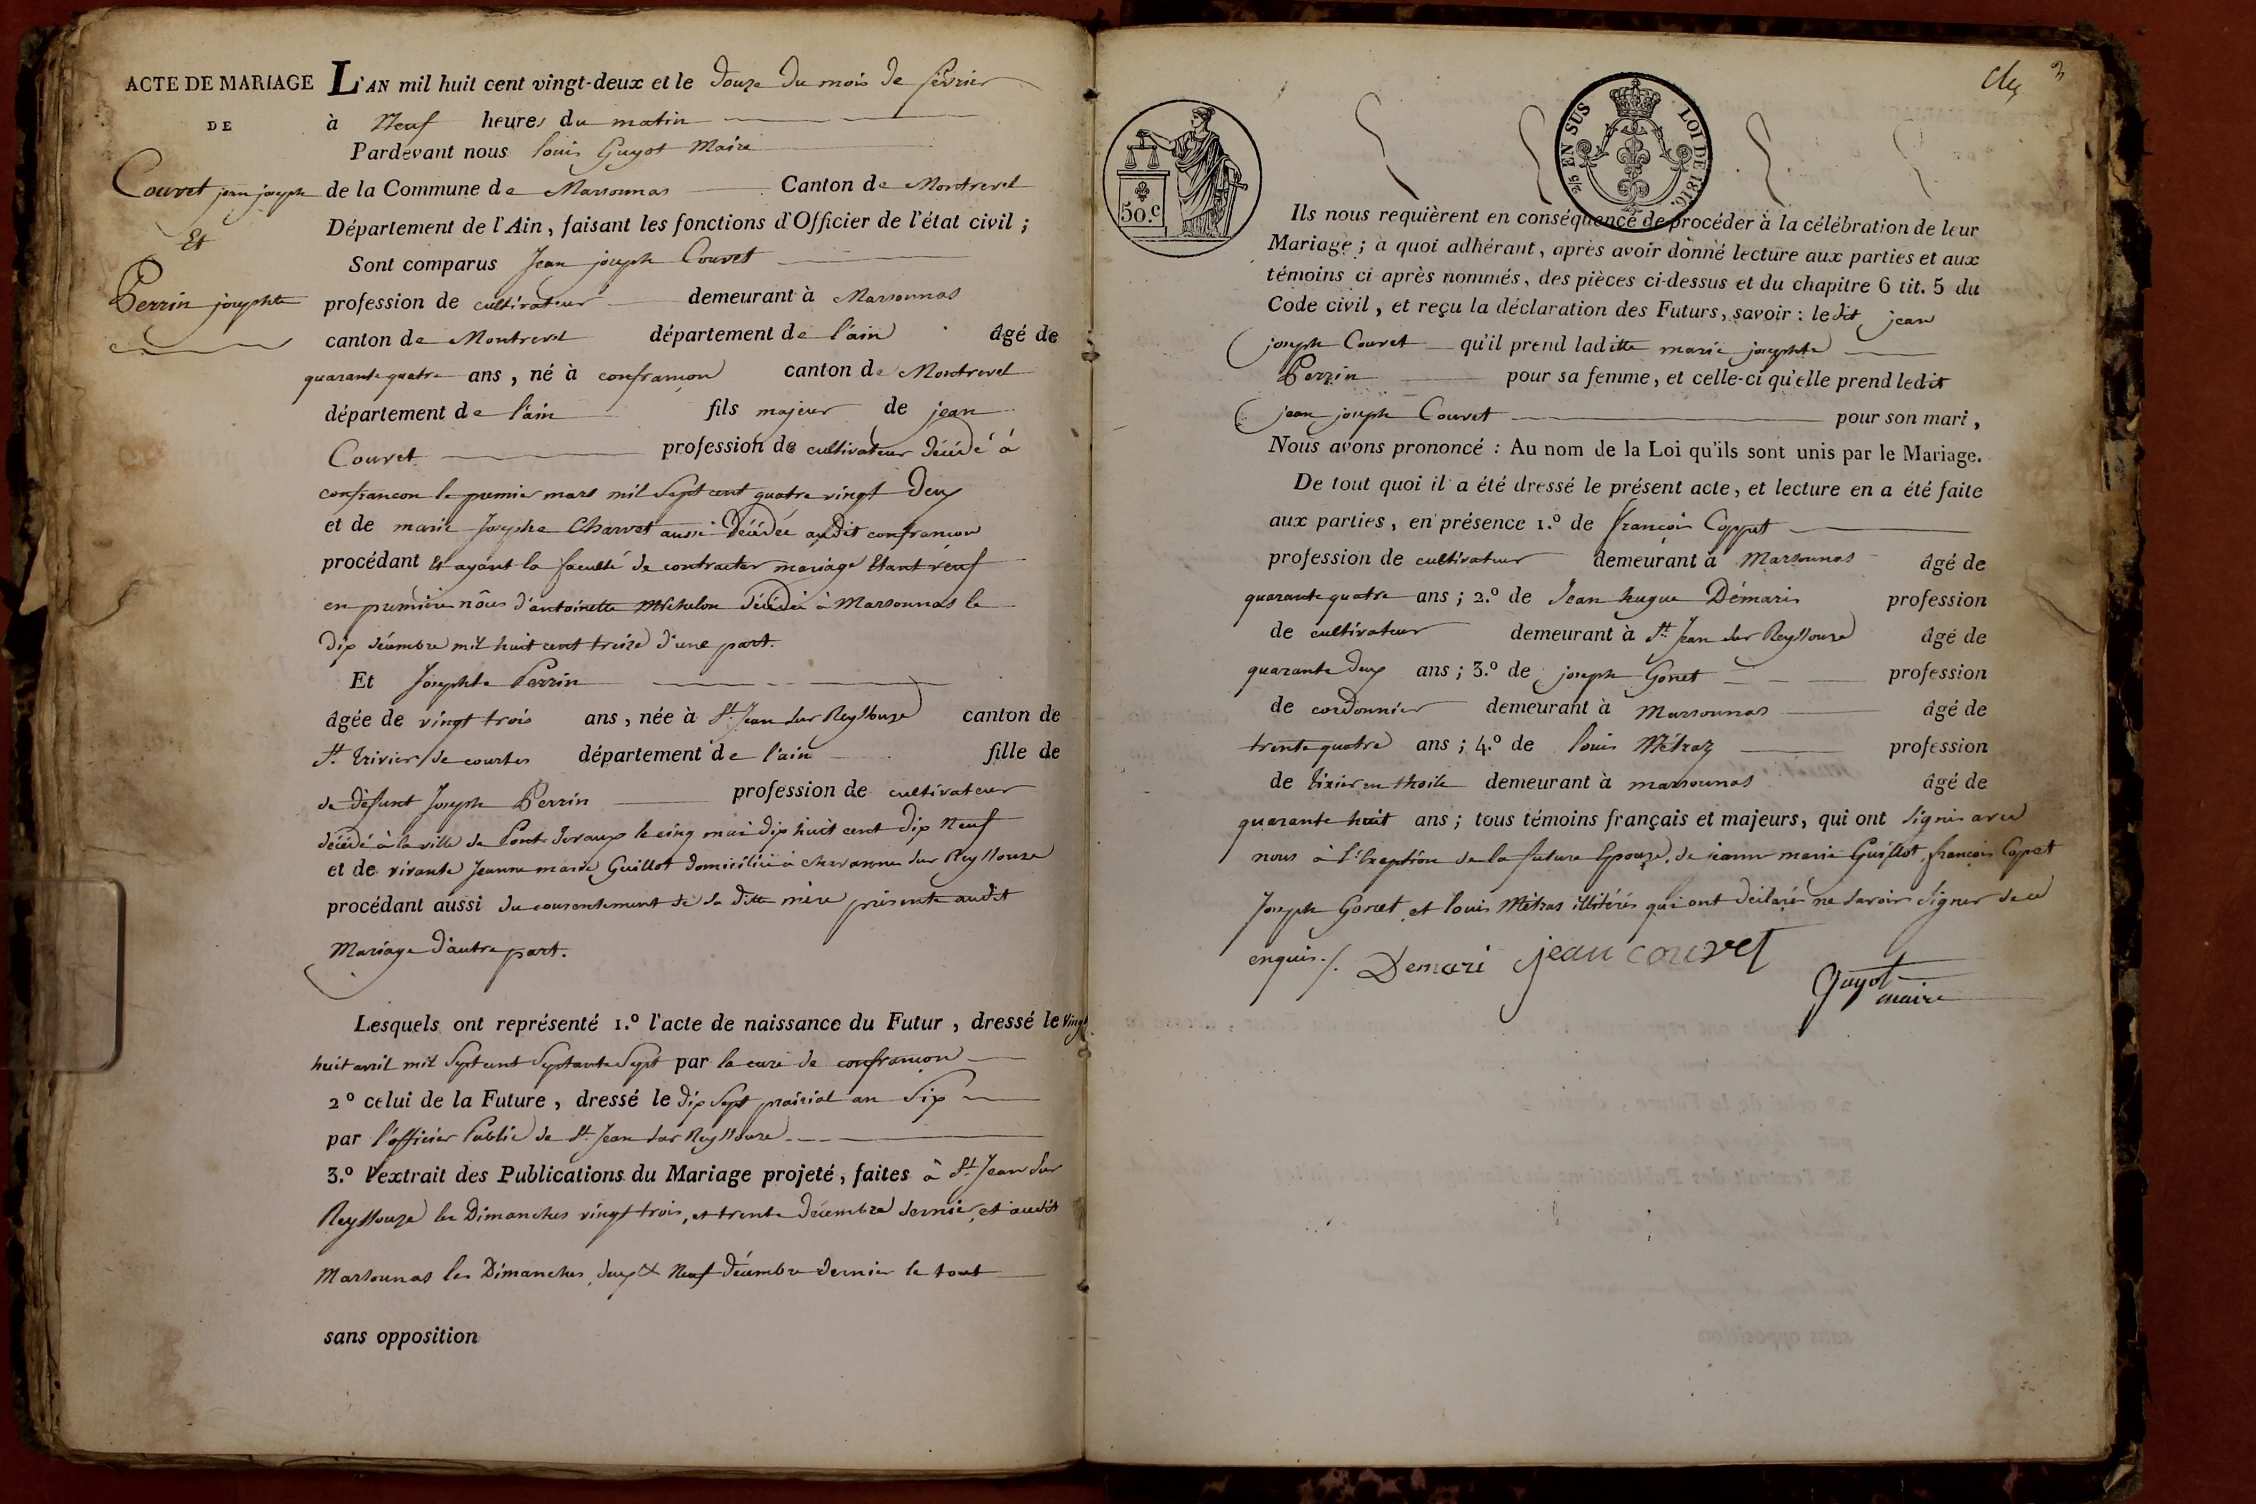 ACTE DE MARIAGE
DE
Couvet jean joseph
Et
Perrin josephte
L'AN mil huit cent vingt-deux et le douze du mois de février
à Neuf heures du matin
Pardevant nous louis Guyot Maire
de la Commune de Marsonnas Canton de Montrevel
Département de l'Ain, faisant les fonctions d'Officier de l'état civil ;
Sont comparus Jean joseph Couvet
profession de cultivateur demeurant à Marsonnas
canton de Montrevel département de l'ain âgé de
quarante quatre ans, né à confrançon canton de Montrevel
département de l'ain fils majeur de jean
Couvet profession de cultivateur décédé à
confrancon le premier mars mil sept cent quatre vingt deux
et de marie Josephe Charvet aussi décédée audit confrançon
procédant et ayant la faculté de contracter mariage étant veuf
en première nôces d'antoinette Michelon décédée à Marsonnas le
dix décembre mil huit cent treize d'une part.
Et Josephte Perrin
âgée de vingt trois ans, née à St. Jean sur Reyssouze canton de
St. Trivier de courtes département de l'ain fille de
de défunt Joseph Perrin profession de cultivateur
décédé à la ville de Pont devaux le cinq mai dix huit cent dix Neuf
et de vivante Jeanne marie Guillot domiciliée à chavannes sur Reyssouze
procédant aussi du consentement de sa ditte mère présente audit
Mariage d'autre part.
Lesquels ont représenté 1.º l'acte de naissance du Futur, dressé le vingt
huit avril mil sept cent septante sept par le curé de confrançon
2º celui de la Future, dressé le dix sept prairial an six
par l'officier Public de St. Jean sur Reyssouze
3.º l'extrait des Publications du Mariage projeté, faites à St. Jean sur
Reyssouze les Dimanches vingt trois, et trente décembre dernier, et audit
Marsonnas les Dimanches, deux & Neuf décembre dernier le tout
sans opposition
3
50.C
5/e EN SUS LOI DE 1816.
Ils nous requièrent en conséquence de procéder à la célébration de leur
Mariage ; à quoi adhérant, après avoir donné lecture aux parties et aux
témoins ci après nommés, des pièces ci-dessus et du chapitre 6 tit. 5 du
Code civil, et reçu la déclaration des Futurs, savoir : ledit jean
joseph Couvet qu'il prend laditte marie josephte
Perrin pour sa femme, et celle-ci qu'elle prend ledit
jean joseph Couvet pour son mari,
Nous avons prononcé : Au nom de la Loi qu'ils sont unis par le Mariage.
De tout quoi il a été dressé le présent acte, et lecture en a été faite
aux parties, en présence 1.º de françois Coppet
profession de cultivateur demeurant à Marsonnas âgé de
quarante quatre ans ; 2.º de Jean hugue Démaris profession
de cultivateur demeurant à St. Jean sur Reyssouze âgé de
quarante deux ans ; 3.º de joseph Gonet profession
de cordonnier demeurant à Marsonnas âgé de
trente quatre ans ; 4.º de louis Métraz profession
de tixier en thoile demeurant à marsonnas âgé de
quarante huit ans ; tous témoins français et majeurs, qui ont signés avec
nous à l'exeption de la future Epouze, de jeanne marie Guillot, françois Coppet
Joseph Gonet, et louis Métras illitérés qui ont déclarés ne savoir signer de ce
enquis ./. Demari jean couvet
Guyot
maire